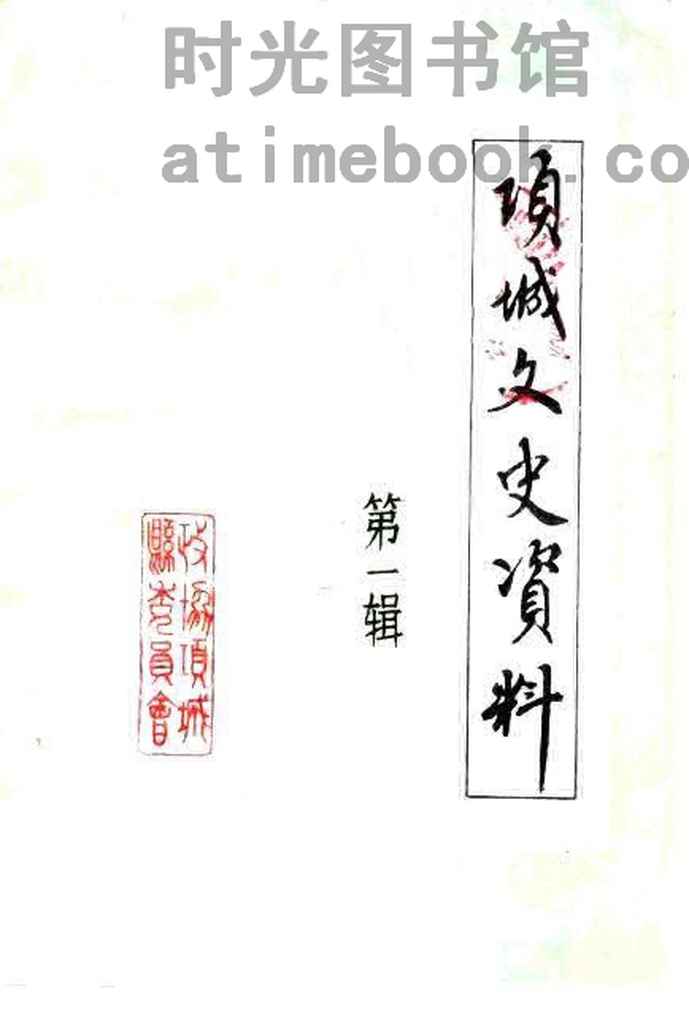 时光图书馆
atimebook.co
項城文史資料
第一辑
政协項城
縣委員會